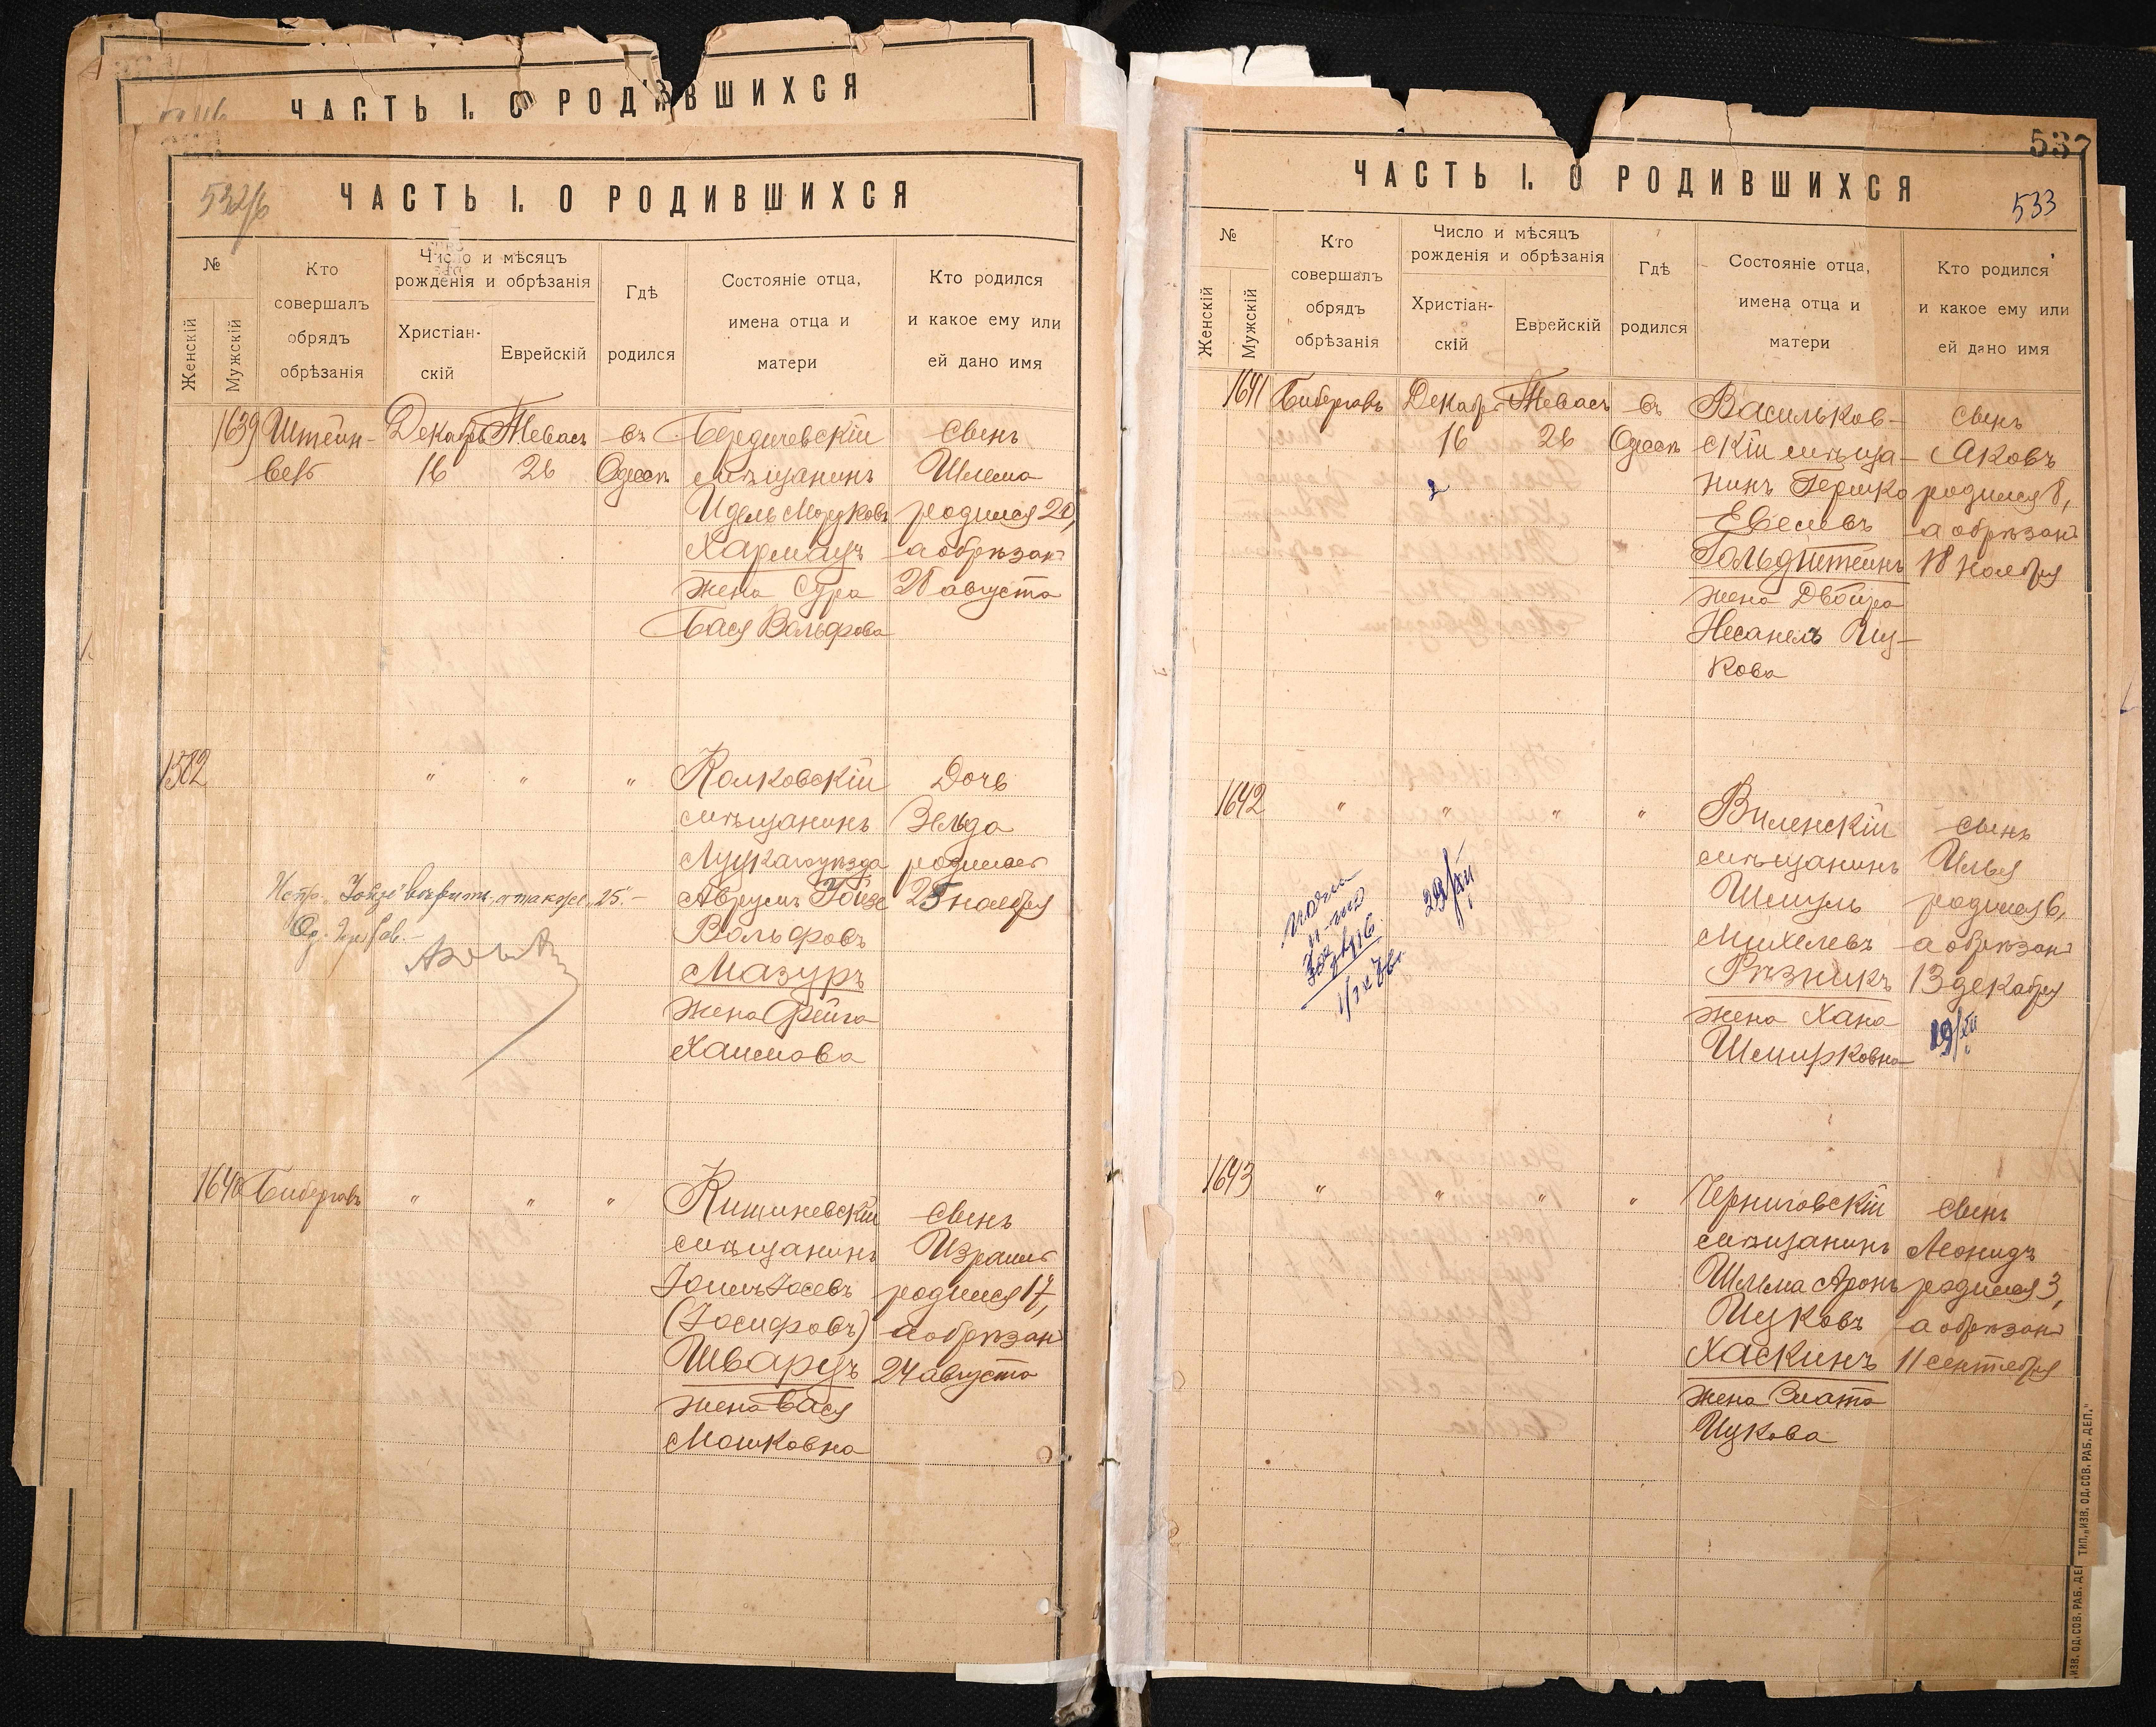 ЧАСТЬ I. О РОДИВШИХСЯ
532/б
ЧАСТЬ I. О РОДИВШИХСЯ
№
Женскій
Мужскій
Кто
совершалъ
обрядъ
обрѣзанія
Число и мѣсяцъ
рожденія и обрѣзанія
Христіан-
скій
Еврейскій
Гдѣ
родился
Состояніе отца,
имена отца и
матери
Кто родился
и какое ему или
ей дано имя
1639
Штейн-
берг
Декабрь
16
Тевасъ
26
въ
Одессѣ
Бердичевскій
мѣщанинъ
Идель Мордковъ
Хармацъ
жена Сура
Бася Вольфова
сынъ
Шлема
родился 20,
а обрѣзанъ
28 августа
1582
" " "
Колковскій
мѣщанинъ
Луцкаго уѣзда
Аврумъ Іойзе
Вольфовъ
Мазуръ
жена Фейга
Хаимова
Дочь
Зельда
родилась
25 ноября
Испр. "Іойзе" вѣрить, а также "25".
Од. Гор. Рав.
1640
Бибергалъ
" " "
Кишиневскій
мѣщанинъ
Іосифъ Іосевъ
(Іосифовъ)
Шварцъ
жена Бася
Мошковна
сынъ
Израиль
родился 17,
а обрѣзанъ
24 августа
537
ЧАСТЬ I. О РОДИВШИХСЯ
533
№
Женскій
Мужскій
Кто
совершалъ
обрядъ
обрѣзанія
Число и мѣсяцъ
рожденія и обрѣзанія
Христіан-
скій
Еврейскій
Гдѣ
родился
Состояніе отца,
имена отца и
матери
Кто родился
и какое ему или
ей дано имя
1641
Бибергалъ
Декабрь
16
2
Тевасъ
26
въ
Одессѣ
Васильков-
скій мѣща-
нинъ Гершко
Евсеевъ
Гольдштейнъ
жена Двойра
Несанелъ Иц-
кова
сынъ
Яковъ
родился 8,
а обрѣзанъ
18 ноября
1642
" " " "
29/XII
Виленскій
мѣщанинъ
Шмуль
Михелевъ
Рѣзникъ
жена Хана
Шмирковна
сынъ
Илья
родился 6,
а обрѣзанъ
13 декабря
19/XII
1643
" " " "
Черниговскій
мѣщанинъ
Шлема Аронъ
Ицковъ
Хаскинъ
жена Злата
Ицкова
сынъ
Леонидъ
родился 3,
а обрѣзанъ
11 сентября
ТИП. „ИЗВ. ОД. СОВ. РАБ. ДЕП."
„ИЗВ. ОД. СОВ. РАБ. ДЕП